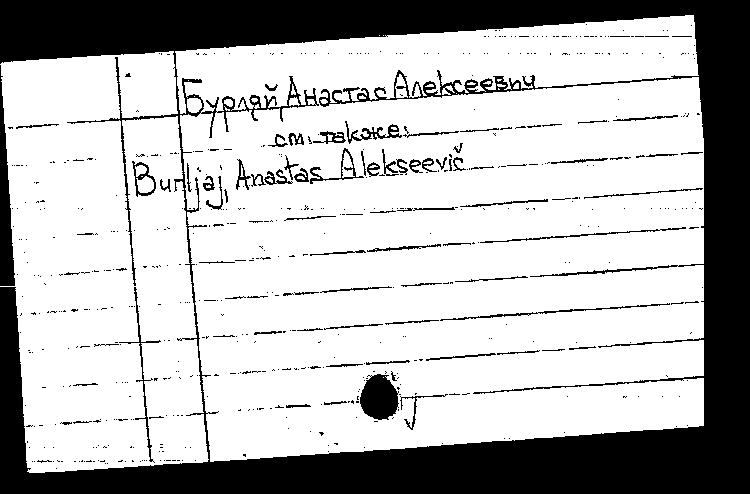 Бурляй, Анастас Алексеевич
см. также:
Burljaj, Anastas Alekseevič